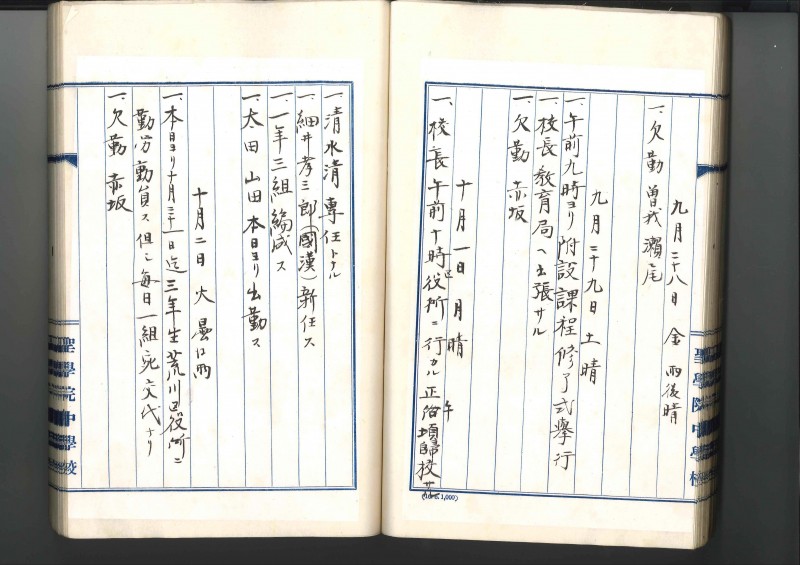 九月二十八日 金 雨後晴
一、欠勤 曽我 瀬尾
九月二十九日 土 晴
一、午前九時ヨリ附設課程修了式擧行
一、校長教育局ヘ出張サル
一、欠勤 赤坂
十月一日 月 晴
一、校長午前十時役所ニ行カル 正午頃歸校サル
(10.6. 1,000)
聖學院中學校
一、清水清専任トナル
一、細井孝三郎(國漢)新任ス
一、一年三組編成ス
一、太田 山田 本日ヨリ出勤ス
十月二日 火 曇後雨
一、本日ヨリ十月三十一日迄三年生荒川区役所ニ
勤労動員ス 但シ毎日一組宛交代ナリ
一、欠勤 赤坂
聖學院中學校